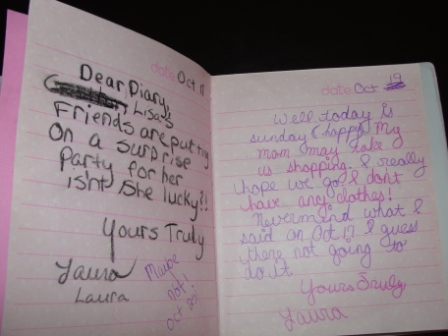 date Oct 17
Dear, Diary,
Lisa's
Friends are putting
on a surprise
party for her
isn't she lucky?!!
Yours Truly
Laura
Laura
Maybe
not!
Oct 20!
date Oct 19
Well today is
sunday & happy. My
mom may take
us shopping. I really
hope we go I don't
have any clothes!
Nevermind what I
said on Oct 17 I guess
there not going to
do it
Yours Truly,
Laura